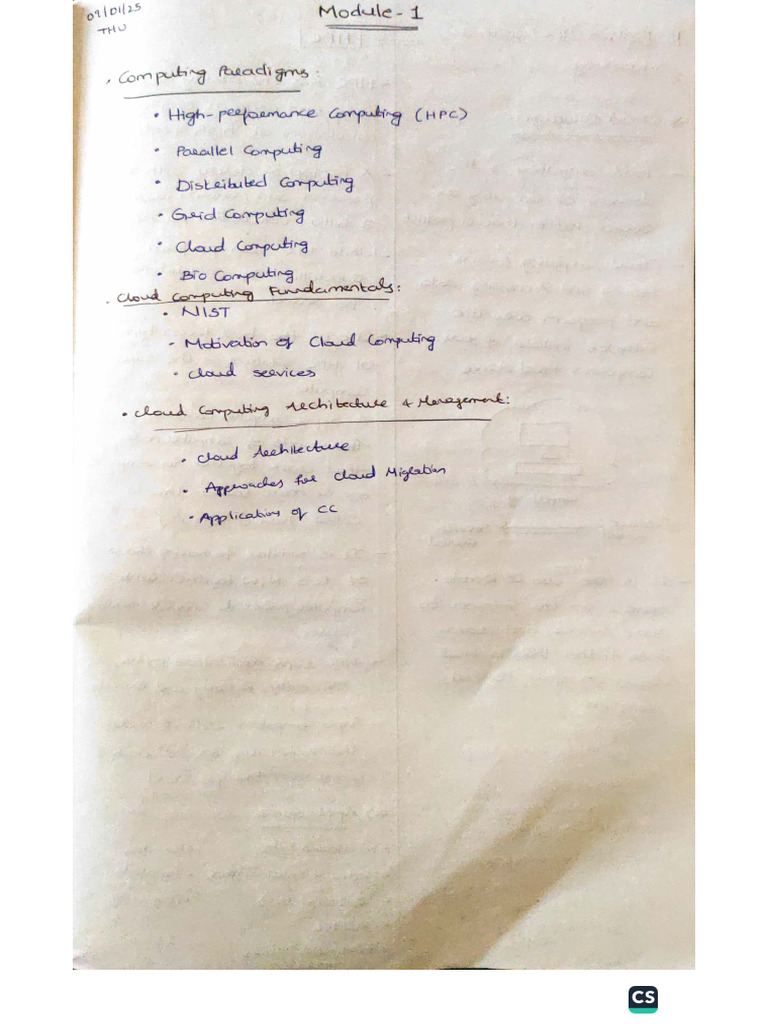 09/01/25
THU
Module-1
• Computing Paradigms:
• High-performance Computing (HPC)
• Parallel Computing
• Distributed Computing
• Grid Computing
• Cloud Computing
• Bio Computing
• Cloud Computing Fundamentals:
• NIST
• Motivation of Cloud Computing
• Cloud services
• Cloud Computing Architecture & Management:
• Cloud Architecture
• Approaches for Cloud Migration
• Applications of CC
CS